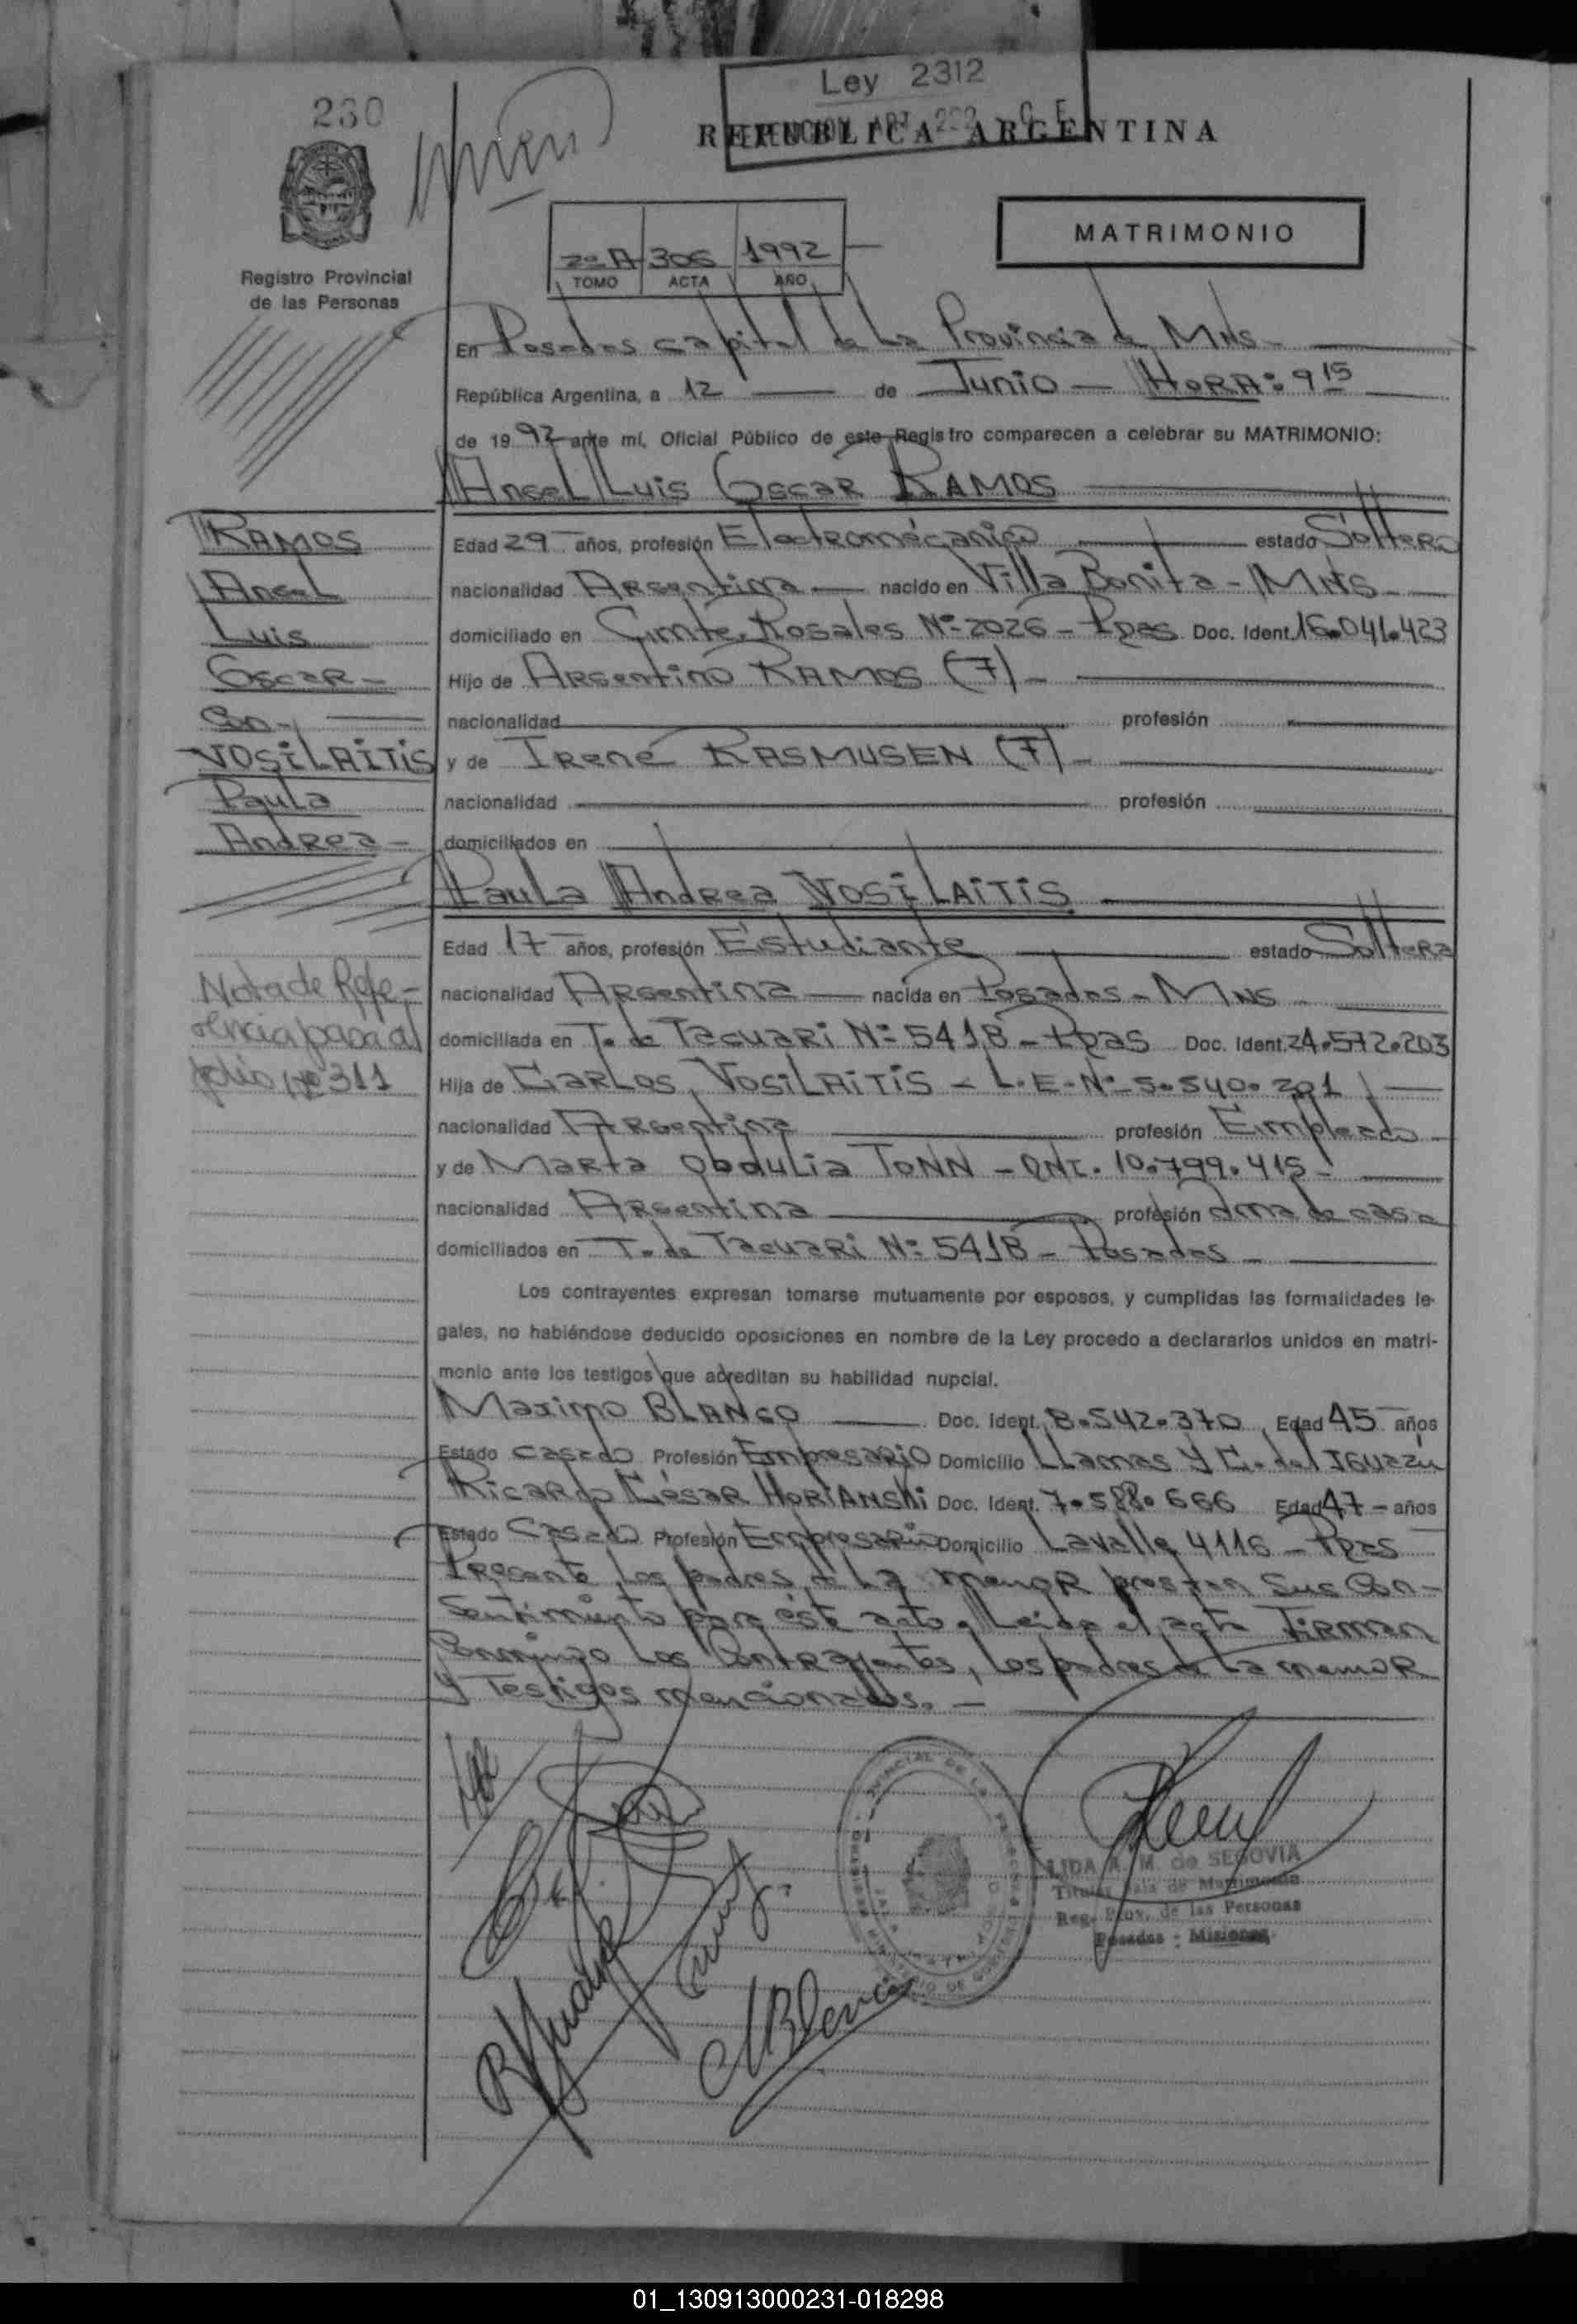 230
Ley 2312
REPUBLICA ARGENTINA
MATRIMONIO
2º A 306 1992
TOMO ACTA AÑO
Registro Provincial
de las Personas
En Posadas capital de La Provincia de Mns-
República Argentina, a 12 de Junio - HORA: 9 15
de 19 92 ante mí, Oficial Público de este Registro comparecen a celebrar su MATRIMONIO:
Angel Luis Oscar RAMOS
RAMOS
Angel
Luis
Oscar-
Con-
VOSILAITIS
Paula
Andrea-
Edad 29 años, profesión Electromécanico estado Soltero
nacionalidad Argentina nacido en Villa Bonita - MNS-
domiciliado en Cmte. Rosales Nº 2026 - Pdas Doc. Ident. 16.041.423
Hijo de Argentino RAMOS (F) -
nacionalidad profesión
y de Irene RASMUSEN (F) -
nacionalidad profesión
domiciliados en
Paula Andrea VOSILAITIS
Edad 17 años, profesión Estudiante estado Soltera
nacionalidad Argentina nacida en Posadas - MNS
domiciliada en T. de Tacuari Nº 5418 - Pdas Doc. Ident. 24.572.203
Hija de Carlos VOSILAITIS - L.E. Nº 5.540.201
nacionalidad Argentina profesión Empleado
y de Marta Obdulia TONN - DNI. 10.799.415-
nacionalidad Argentina profesión ama de casa
domiciliados en T. de Tacuari Nº 5418 - Posadas -
Nota de Refe-
rencia pasa al
folio nº 311
Los contrayentes expresan tomarse mutuamente por esposos, y cumplidas las formalidades le-
gales, no habiéndose deducido oposiciones en nombre de la Ley procedo a declararlos unidos en matri-
monio ante los testigos que acreditan su habilidad nupcial.
Maximo BLANCO Doc. Ident. 8.542.370 Edad 45 años
Estado Casado Profesión Empresario Domicilio Llamas y C. del Iguazú
Ricardo César HORIANSKI Doc. Ident. 7.588.666 Edad 47 - años
Estado Casado Profesión Empresario Domicilio Lavalle 4116 - Pdas
Presente los padres de La menor prestan sus Con-
sentimiento para éste acto. Leida el acta Firman
Conmigo Los Contrayentes, los padres de La menor
y Testigos mencionados. -
LIDA A. M. de SEGOVIA
Titular Sala de Matrimonio
Reg. Prov. de las Personas
Posadas - Misiones
01_130913000231-018298